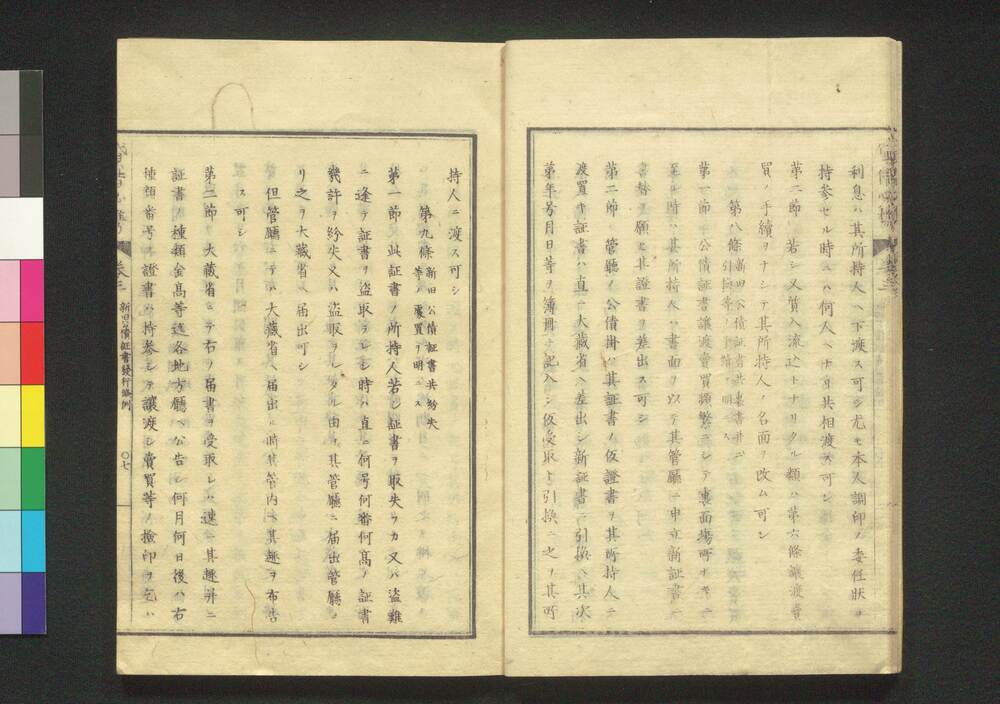 利息ハ其所持人ヘ下渡ス可シ尤モ本人調印ノ委任状ヲ
持参セル時ハハ何人ヘナリ共相渡ス可シ
第二節 若シ又質入流込トナリタル類ハ第六條讓渡賣
買ノ手續ヲナシテ其所持人ノ名面ヲ改ム可シ
第八條 新田公債証書共裏書并ニ
引換等ノ手續ヲ明ニス
第一節 公債証書讓渡賣買頻繁ニシテ裏面塲所ナキニ
至ル時ハ其所持人ハ書面ヲ以テ其管廳ニ申立新証書ニ
書替ヲ願ヒ其證書ヲ差出ス可シ
第二節 管廳ノ公債掛ハ其証書ノ仮證書ヲ其所持人ニ
渡置キ証書ハ直ニ大藏省ヘ差出シ新証書ニ引換ヘ其次
第年号月日等ヲ簿冊ヘ記入シ仮受取ト引換ニ之ヲ其所
持人ニ渡ス可シ
第九條 新旧公債証書共紛失
等ノ處置ヲ明ニス
第一節 此証書ノ所持人若シ証書ヲ取失フカ又ハ盗難
ニ逢テ証書ヲ盗取ラレシ時ハ直ニ何号何番何高ノ証書
幾許ヲ紛失又ハ盗取ラレタル由ヲ其管廳ニ届出管廳ヨ
リ之ヲ大藏省ヘ届出可シ
但管廳ニテハ大藏省ヘ届出ル時其管内ヘ其趣ヲ布告
ス可シ
第二節 大藏省ニテ右ノ届書ヲ受取レハ速ニ其趣并ニ
証書ノ種類金高等迄各地方廳ヘ公告シ何月何日後ハ右
種類番号ノ證書ハ持参シテ讓渡シ賣買等ノ撿印ヲ乞ハ
卷三 新旧公債証書發行條例 〇七